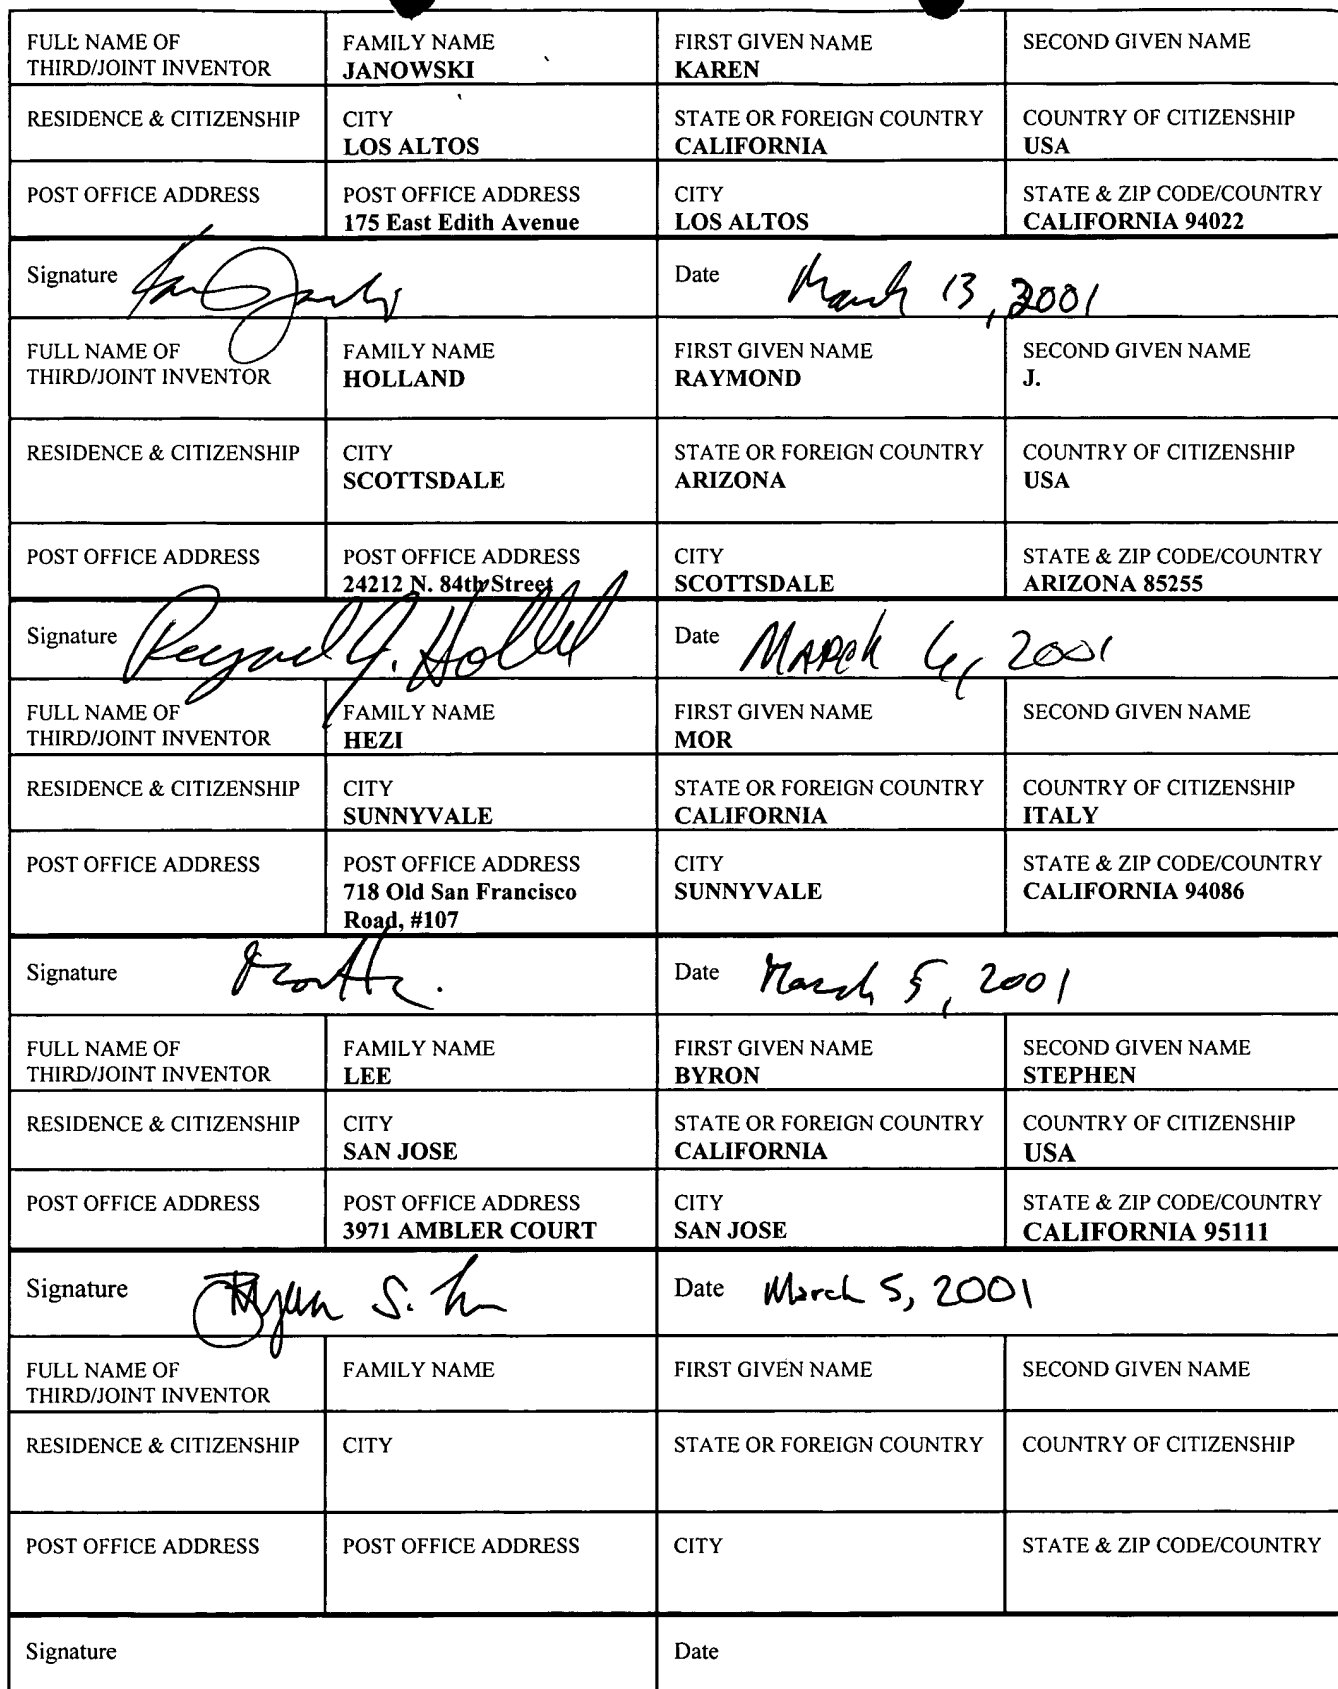 FULL NAME OF THIRD/JOINT INVENTOR FAMILY NAME JANOWSKI FIRST GIVEN NAME KAREN SECOND GIVEN NAME
RESIDENCE & CITIZENSHIP CITY LOS ALTOS STATE OR FOREIGN COUNTRY CALIFORNIA COUNTRY OF CITIZENSHIP USA
POST OFFICE ADDRESS POST OFFICE ADDRESS 175 East Edith Avenue CITY LOS ALTOS STATE & ZIP CODE/COUNTRY CALIFORNIA 94022
Signature Date March 13, 2001
FULL NAME OF THIRD/JOINT INVENTOR FAMILY NAME HOLLAND FIRST GIVEN NAME RAYMOND SECOND GIVEN NAME J.
RESIDENCE & CITIZENSHIP CITY SCOTTSDALE STATE OR FOREIGN COUNTRY ARIZONA COUNTRY OF CITIZENSHIP USA
POST OFFICE ADDRESS POST OFFICE ADDRESS 24212 N. 84th Street CITY SCOTTSDALE STATE & ZIP CODE/COUNTRY ARIZONA 85255
Signature Date MARCH 6, 2001
FULL NAME OF THIRD/JOINT INVENTOR FAMILY NAME HEZI FIRST GIVEN NAME MOR SECOND GIVEN NAME
RESIDENCE & CITIZENSHIP CITY SUNNYVALE STATE OR FOREIGN COUNTRY CALIFORNIA COUNTRY OF CITIZENSHIP ITALY
POST OFFICE ADDRESS POST OFFICE ADDRESS 718 Old San Francisco Road, #107 CITY SUNNYVALE STATE & ZIP CODE/COUNTRY CALIFORNIA 94086
Signature Date March 5, 2001
FULL NAME OF THIRD/JOINT INVENTOR FAMILY NAME LEE FIRST GIVEN NAME BYRON SECOND GIVEN NAME STEPHEN
RESIDENCE & CITIZENSHIP CITY SAN JOSE STATE OR FOREIGN COUNTRY CALIFORNIA COUNTRY OF CITIZENSHIP USA
POST OFFICE ADDRESS POST OFFICE ADDRESS 3971 AMBLER COURT CITY SAN JOSE STATE & ZIP CODE/COUNTRY CALIFORNIA 95111
Signature Date March 5, 2001
FULL NAME OF THIRD/JOINT INVENTOR FAMILY NAME FIRST GIVEN NAME SECOND GIVEN NAME
RESIDENCE & CITIZENSHIP CITY STATE OR FOREIGN COUNTRY COUNTRY OF CITIZENSHIP
POST OFFICE ADDRESS POST OFFICE ADDRESS CITY STATE & ZIP CODE/COUNTRY
Signature Date